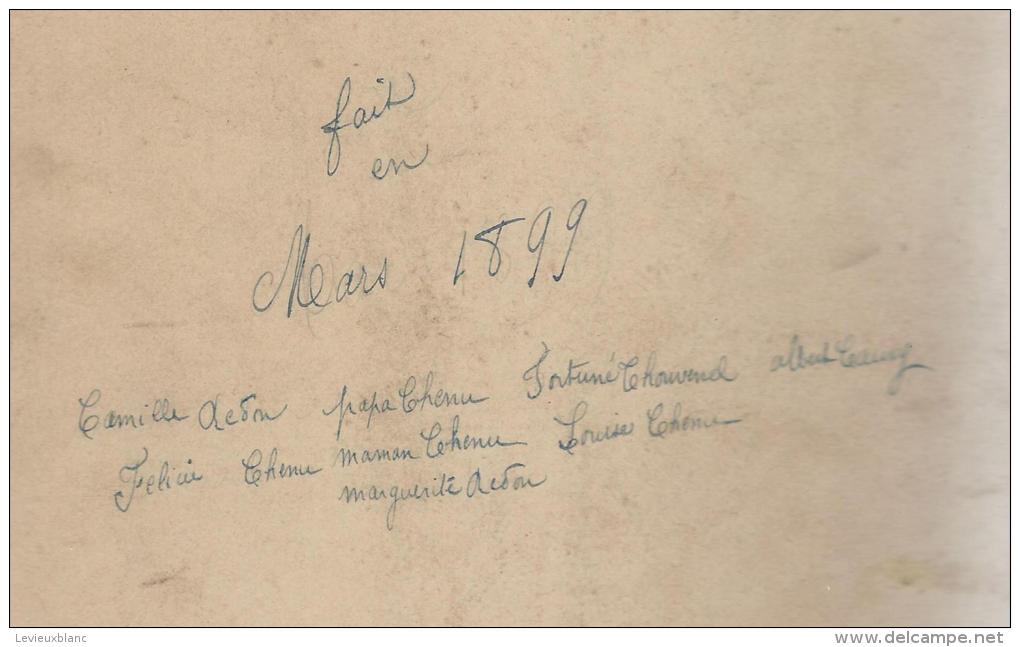 fait
en
Mars 1899
Camille Redon papa Chenu Fortuné Thouvenel albert
Félicie Chenu maman Chenu Louise Chenu
marguerite Redon
Levieuxblanc
www.delcampe.net